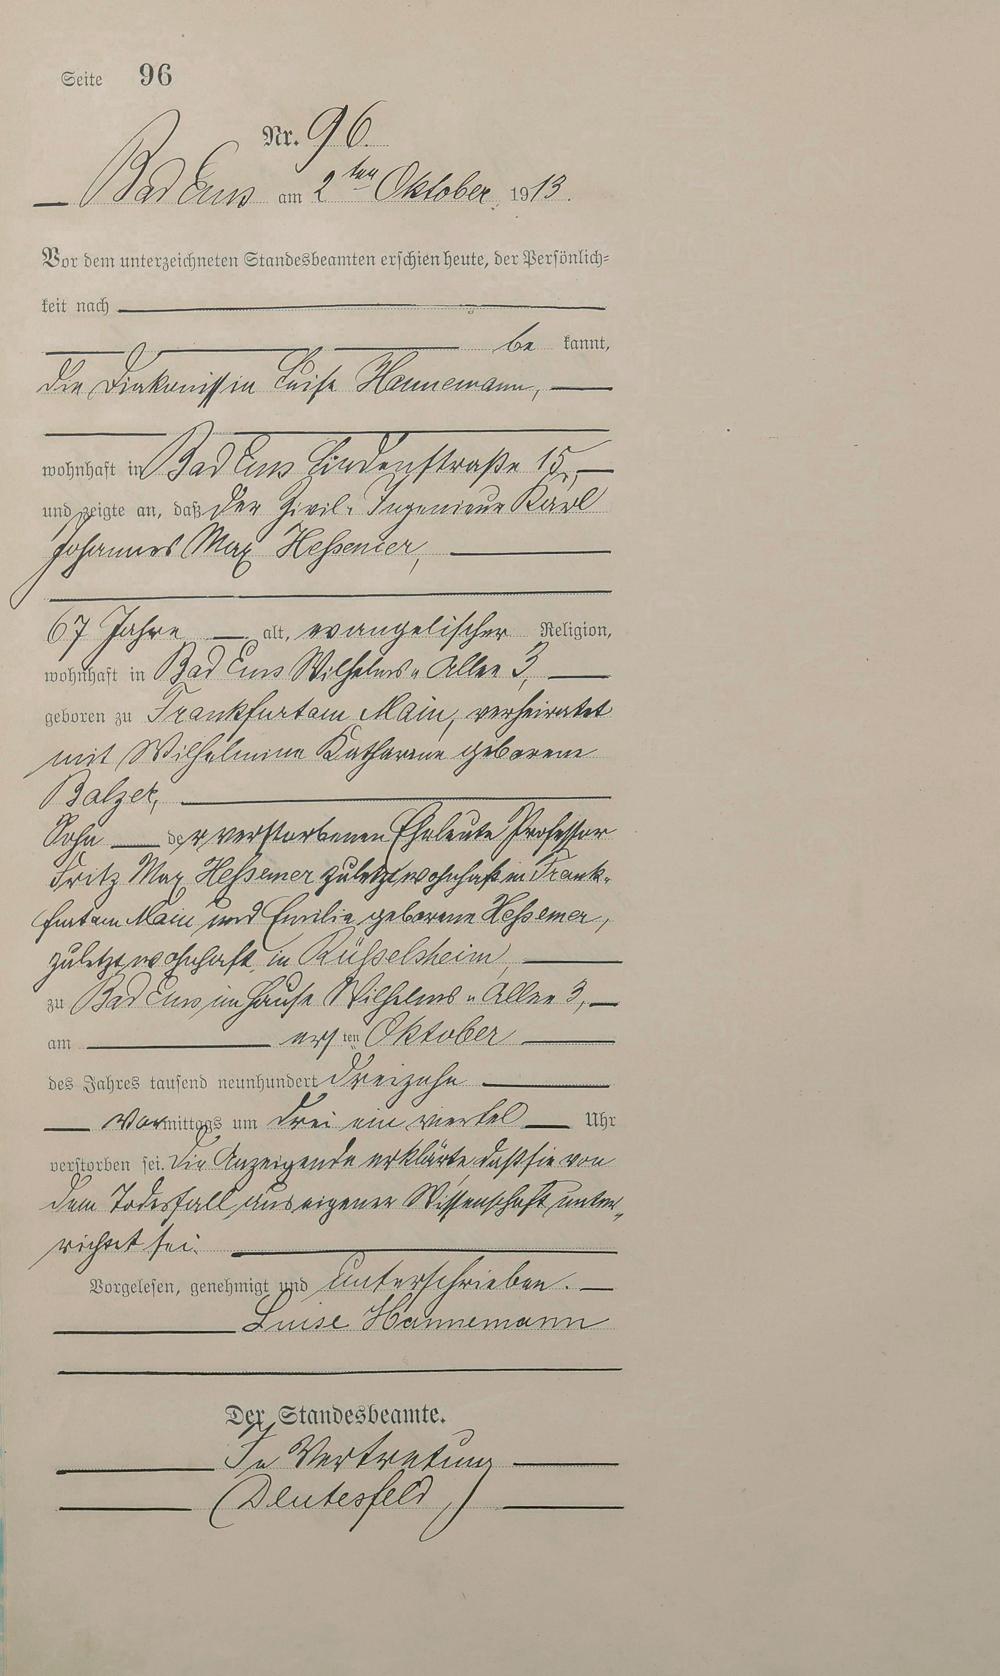 Seite 96
Nr. 96.
Bad Ems am 2ten Oktober 1913.
Vor dem unterzeichneten Standesbeamten erschien heute, der Persönlich=
keit nach
be kannt,
die Diakonissin Luise Hannemann,
wohnhaft in Bad Ems Lindenstraße 15,
und zeigte an, daß der Zivil-Ingenieur Karl
Johannes Max Hessemer,
67 Jahre alt, evangelischer Religion,
wohnhaft in Bad Ems Wilhelms-Allee 3,
geboren zu Frankfurt am Main, verheiratet
mit Wilhelmine Katharine geborene
Balzer,
Sohn der verstorbenen Eheleute Professor
Fritz Max Hessemer zuletzt wohnhaft in Frank-
furt am Main und Emilie geborene Hessemer,
zuletzt wohnhaft in Rüsselsheim,
zu Bad Ems im Hause Wilhelms-Allee 3,
am ersten Oktober
des Jahres tausend neunhundert dreizehn
Vormittags um drei ein viertel Uhr
verstorben sei. Die Anzeigende erklärte, daß sie von
dem Todesfall aus eigener Wissenschaft unter-
richtet sei.
Vorgelesen, genehmigt und unterschrieben.
Luise Hannemann
Der Standesbeamte.
In Vertretung
(Deutesfeld)